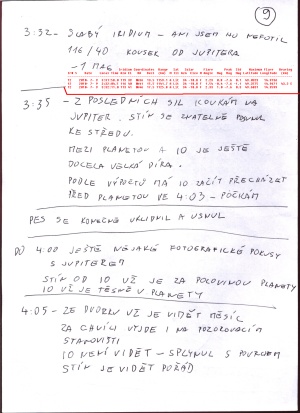 9
3:32 - SLABÝ IRIDIUM - ANI JSEM HO NEFOTIL
116/40 KOUSEK OD JUPITERA
-1 MAG
3:35 - Z POSLEDNÍCH SIL KOUKÁM NA
JUPITER. STÍN SE ZNATELNĚ POSUNUL
KE STŘEDU.
MEZI PLANETOU A IO JE JEŠTĚ
DOCELA VELKÁ DÍRA.
PODLE VÝPOČTŮ MÁ IO ZAČÍT PŘECHÁZET
PŘED PLANETOU VE 4:03 - POČKÁM
PES SE KONEČNĚ UKLIDNIL A USNUL
DO 4:00 JEŠTĚ NĚJAKÉ FOTOGRAFICKÉ POKUSY
S JUPITEREM
STÍN OD IO UŽ JE ZA POLOVINOU PLANETY
IO UŽ JE TĚSNĚ U PLANETY
4:05 - ZE DVORKU UŽ JE VIDĚT MĚSÍC
ZA CHVÍLI VYJDE I NA POZOROVACÍM
STANOVIŠTI
IO NENÍ VIDĚT - SPLYNUL S POVRCHEM
STÍN JE VIDĚT POŘÁD